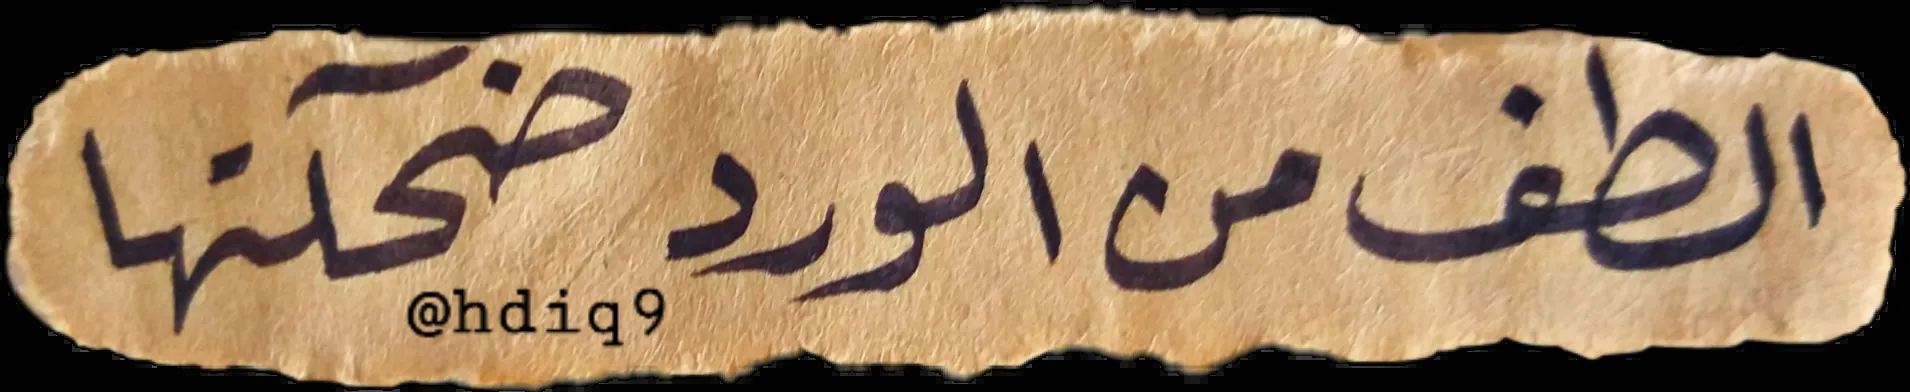 الطف من الورد ضحكتها
@hdiq9